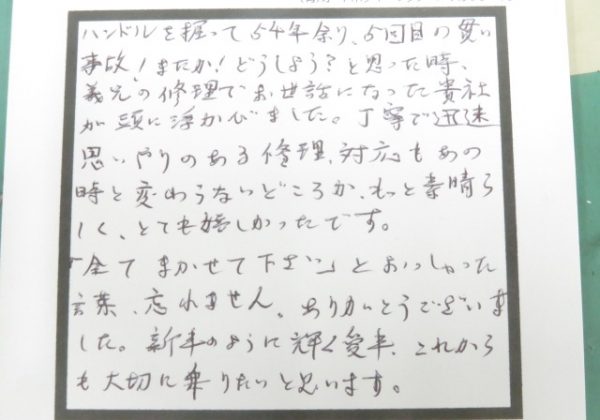 ハンドルを握って54年余り、5回目の貰い
事故！またか！どうしよう？と思った時、
義兄の修理でお世話になった貴社
が頭に浮かびました。丁寧で迅速
思いやりのある修理、対応もあの
時と変わらないどころか、もっと素晴ら
しく、とても嬉しかったです。
「全てまかせて下さい」とおっしゃった
言葉、忘れません。ありがとうございま
した。新車のように輝く愛車、これから
も大切に乗りたいと思います。